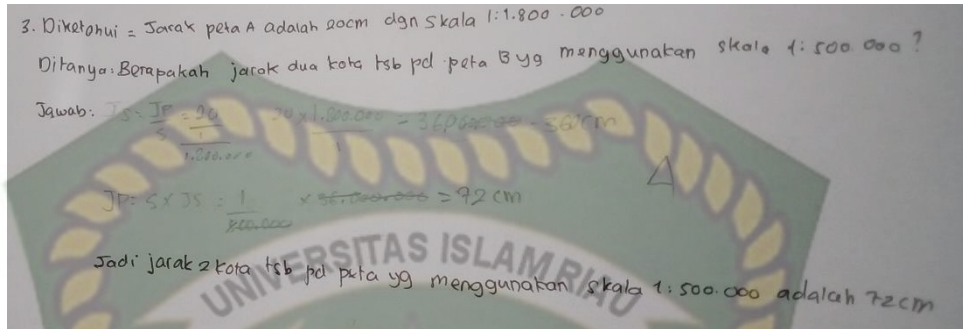 3. Diketahui = Jarak peta A adalah 20cm dgn skala 1:1.800.000
Ditanya: Berapakah jarak dua kota tsb pd peta B yg menggunakan skala 1:500.000?
Jawab: JS = JP/S = 20/1/1.800.000 20 x 1.800.000/1 = 360 cm
A
JP: S x JS : 1/500.000 x 36.000.000 = 72 cm
UNIVERSITAS ISLAM RIAU
Jadi jarak 2 kota tsb pd peta yg menggunakan skala 1:500.000 adalah 72cm